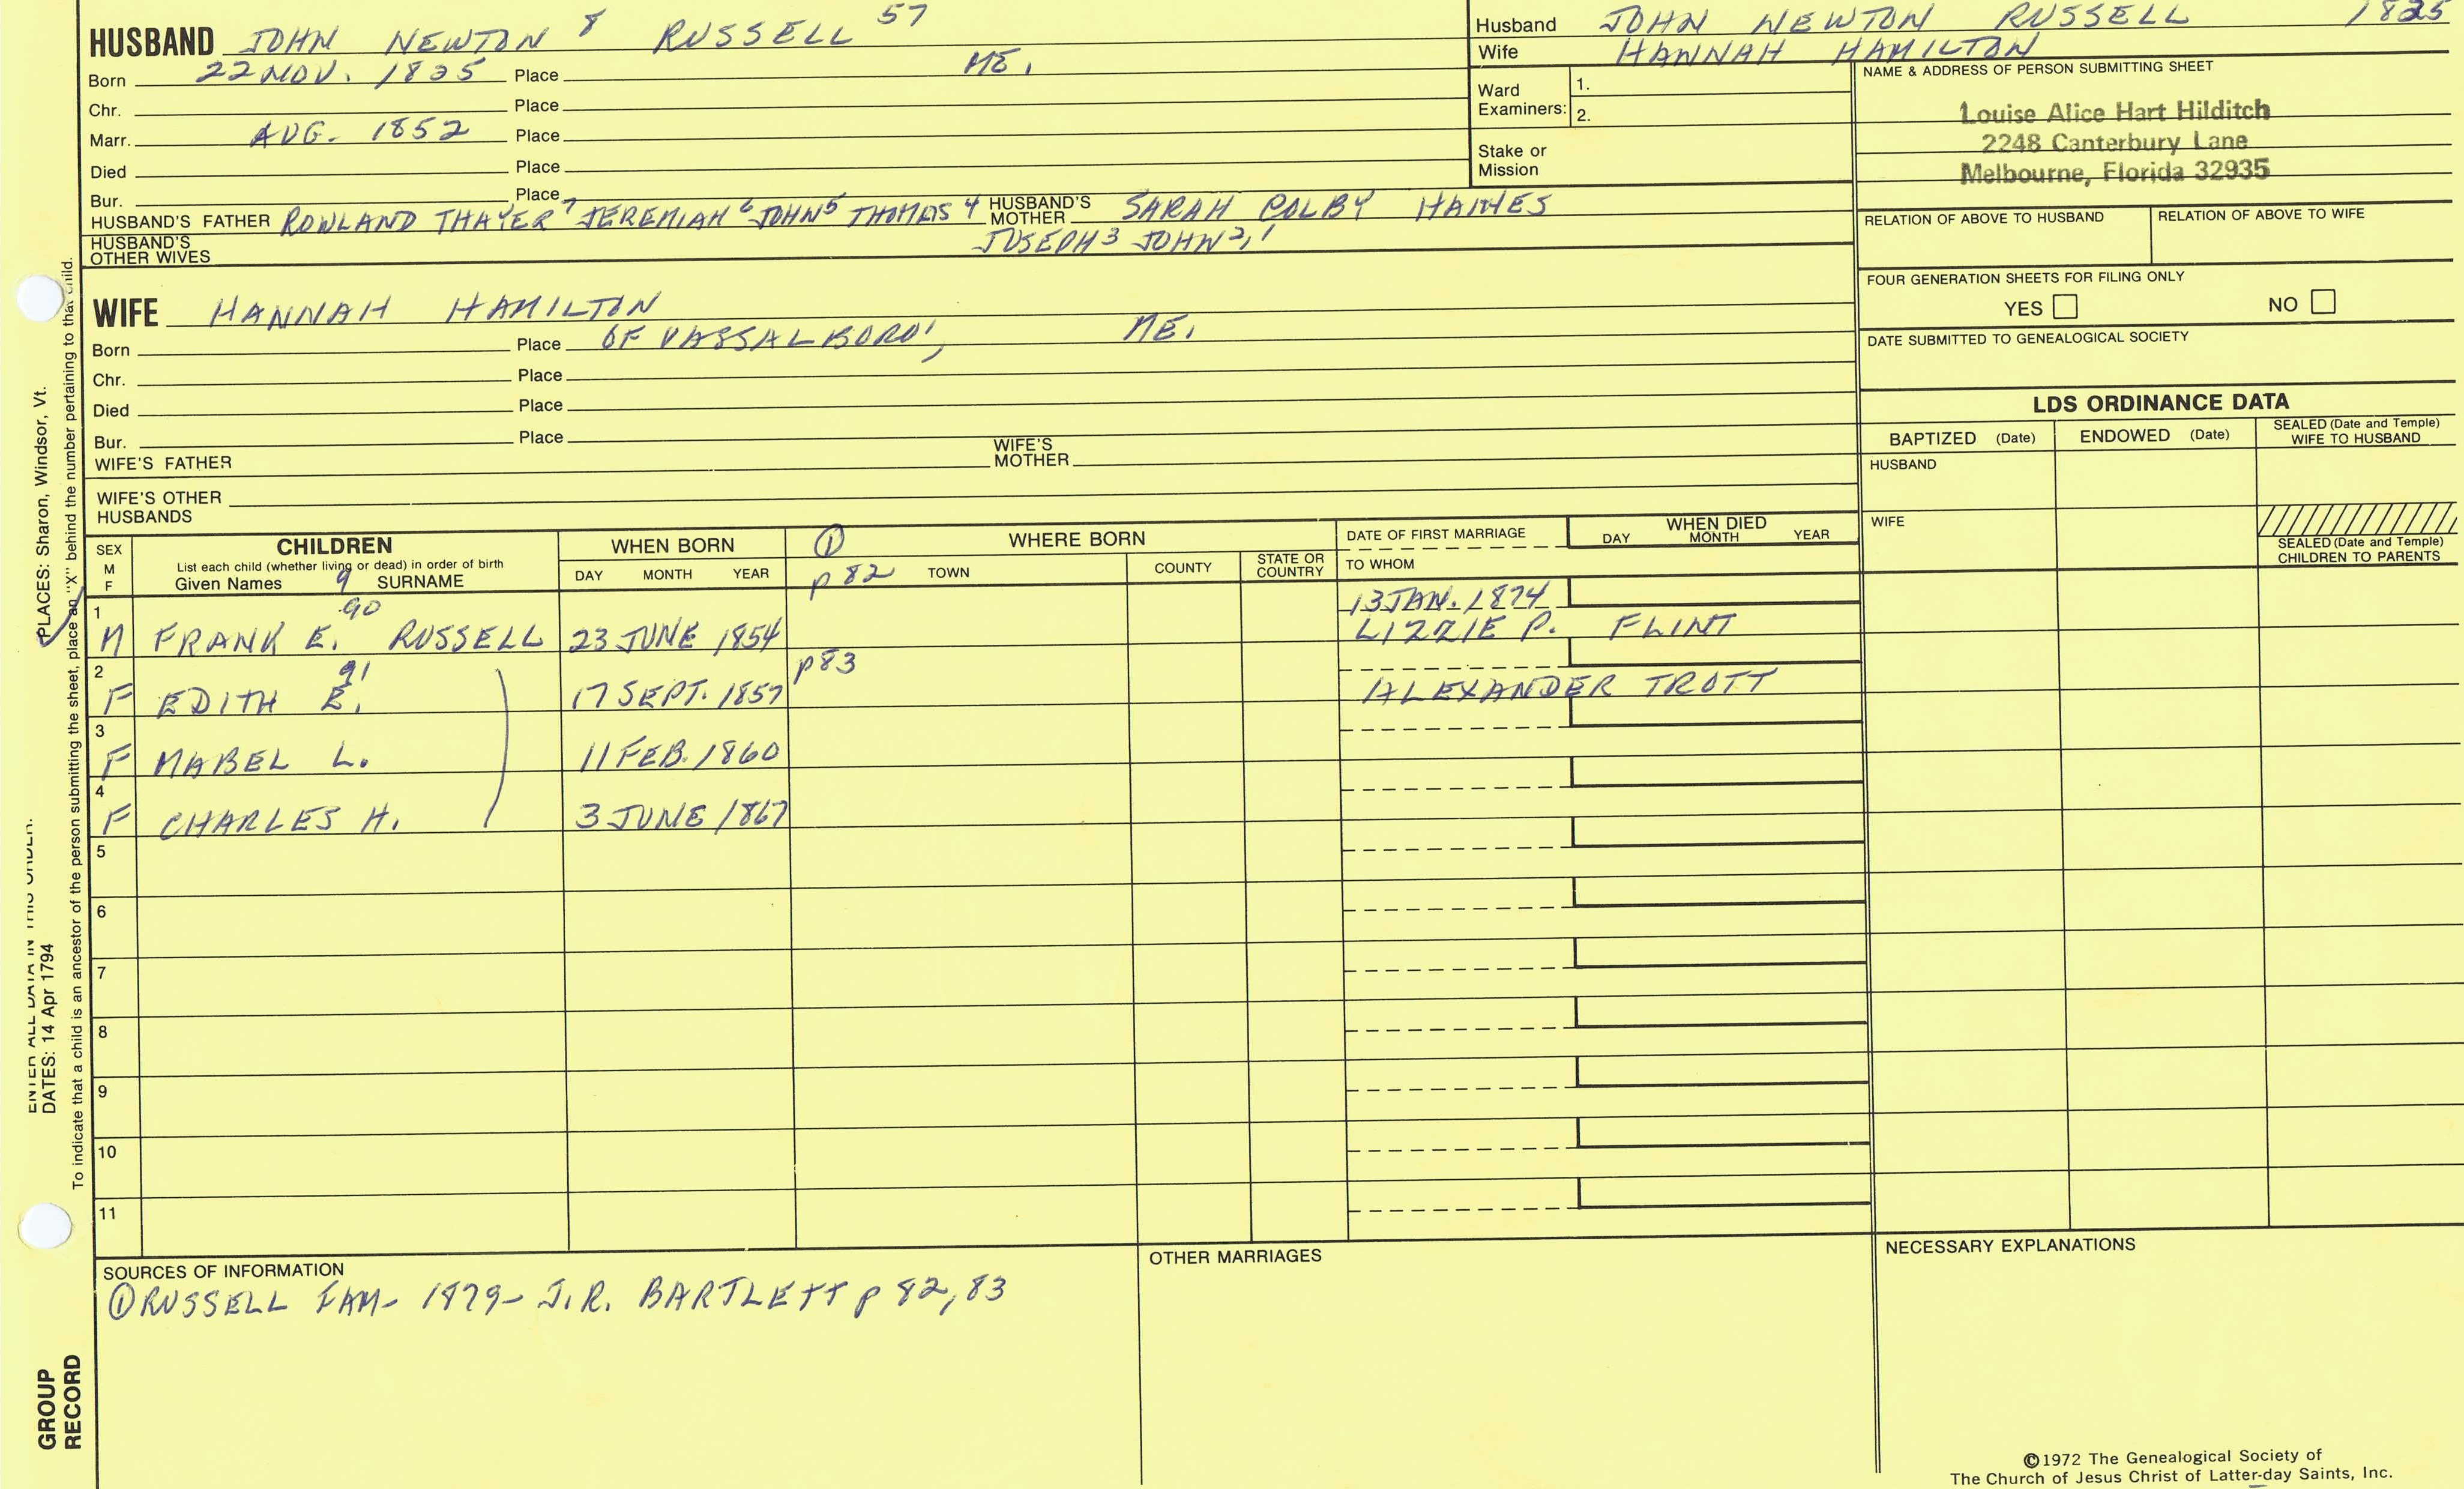 HUSBAND JOHN NEWTON 8 RUSSELL 57
Born 22 NOV. 1825 Place ME.
Chr. Place
Marr. AUG. 1852 Place
Died Place
Bur. Place
HUSBAND'S FATHER ROWLAND THAYER 7 JEREMIAH 6 JOHN 5 THOMAS 4 HUSBAND'S MOTHER SARAH COLBY HAINES
JOSEPH 3 JOHN 2,1
HUSBAND'S OTHER WIVES
Husband JOHN NEWTON RUSSELL 1825
Wife HANNAH HAMILTON
Ward Examiners: 1.
2.
Stake or Mission
NAME & ADDRESS OF PERSON SUBMITTING SHEET
Louise Alice Hart Hilditch
2248 Canterbury Lane
Melbourne, Florida 32935
RELATION OF ABOVE TO HUSBAND RELATION OF ABOVE TO WIFE
FOUR GENERATION SHEETS FOR FILING ONLY
YES NO
DATE SUBMITTED TO GENEALOGICAL SOCIETY
WIFE HANNAH HAMILTON
Born Place OF VASSALBORO', ME.
Chr. Place
Died Place
Bur. Place
WIFE'S FATHER WIFE'S MOTHER
WIFE'S OTHER HUSBANDS
LDS ORDINANCE DATA
BAPTIZED (Date) ENDOWED (Date) SEALED (Date and Temple) WIFE TO HUSBAND
HUSBAND
WIFE
SEALED (Date and Temple) CHILDREN TO PARENTS
SEX M F
CHILDREN
List each child (whether living or dead) in order of birth
Given Names 9 SURNAME
WHEN BORN
DAY MONTH YEAR
① WHERE BORN
p 82 TOWN COUNTY STATE OR COUNTRY
DATE OF FIRST MARRIAGE
TO WHOM
WHEN DIED
DAY MONTH YEAR
1 M FRANK E. 90 RUSSELL 23 JUNE 1854 13 JAN. 1874
LIZZIE P. FLINT
2 F EDITH E. 91 17 SEPT. 1857 p83 ALEXANDER TROTT
3 F MABEL L. 11 FEB. 1860
4 F CHARLES H. 3 JUNE 1867
5
6
7
8
9
10
11
SOURCES OF INFORMATION
① RUSSELL FAM- 1879- J.R. BARTLETT p 82, 83
OTHER MARRIAGES
NECESSARY EXPLANATIONS
©1972 The Genealogical Society of
The Church of Jesus Christ of Latter-day Saints, Inc.
PLACES: Sharon, Windsor, Vt.
ENTER ALL DATA IN THIS ORDER:
DATES: 14 Apr 1794
To indicate that a child is an ancestor of the person submitting the sheet, place an "X" behind the number pertaining to that child.
GROUP
RECORD